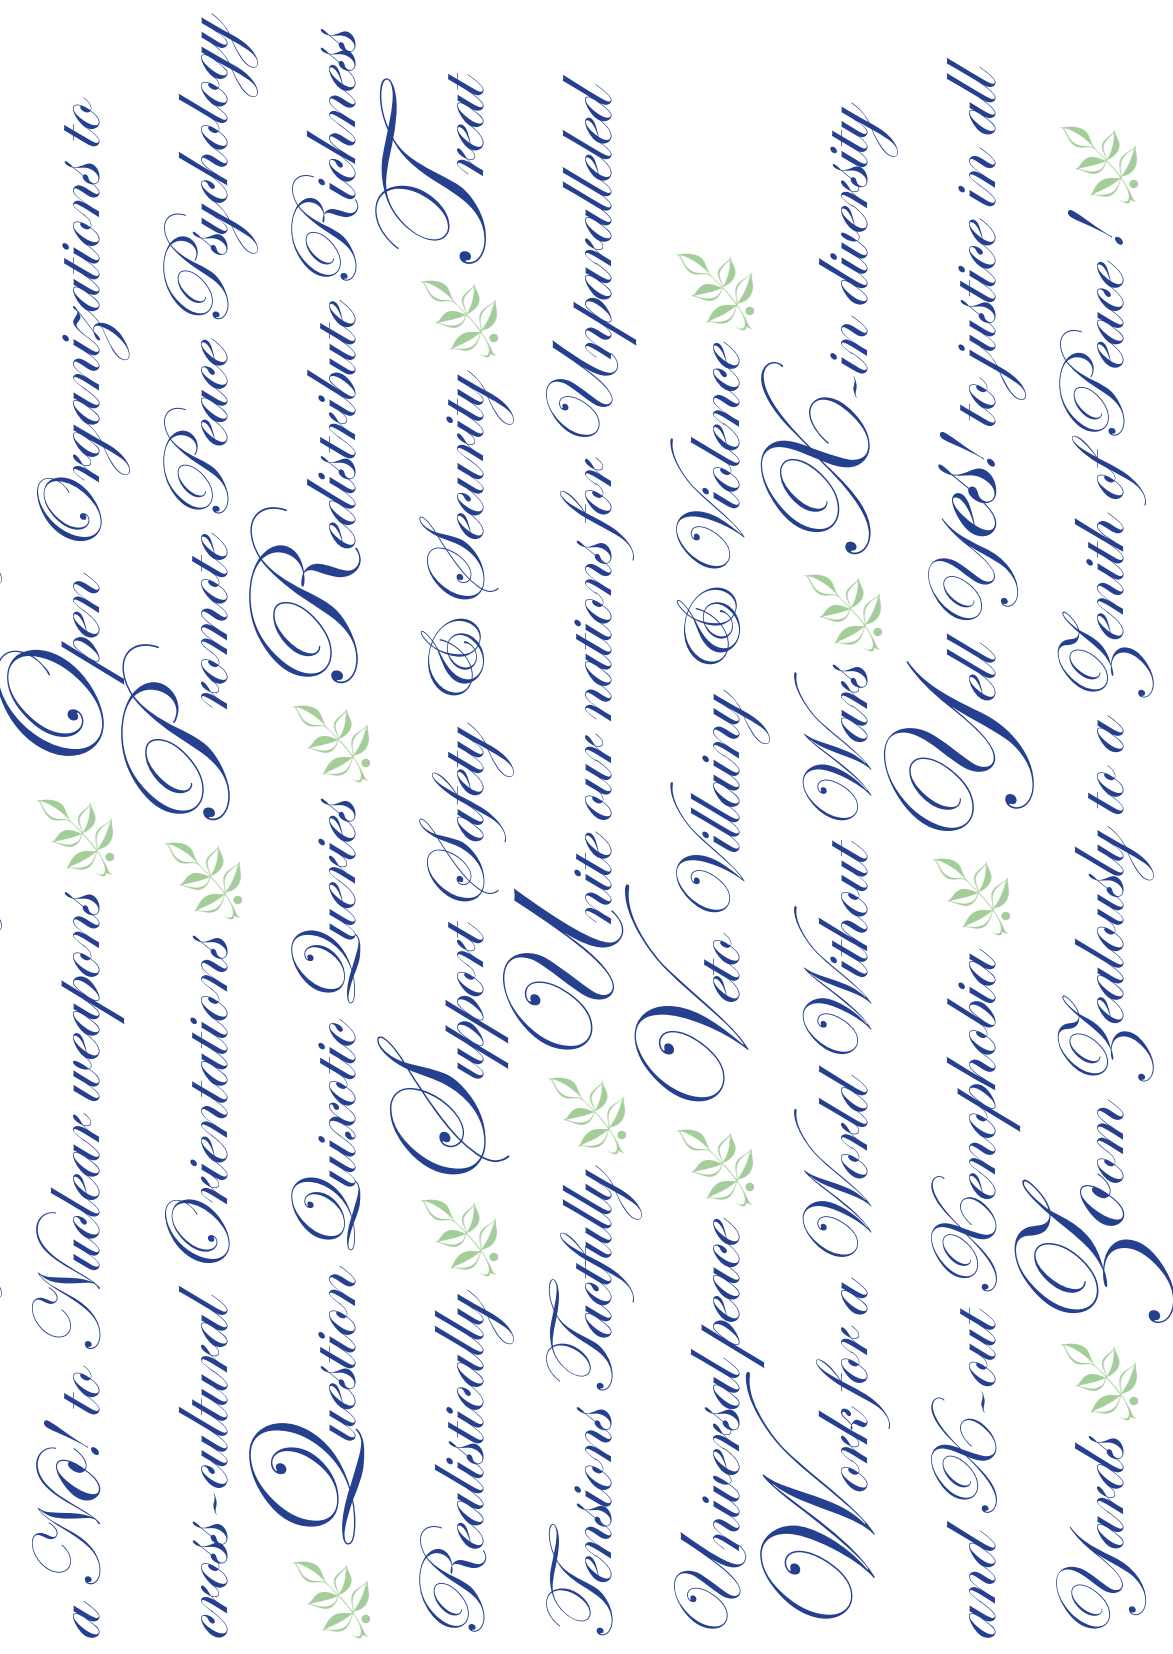 a No! to Nuclear weapons Open Organizations to
cross-cultural Orientations Promote Peace Psychology
Question Quixotic Queries Redistribute Richness
Realistically Support Safety & Security Treat
Tensions Tactfully Unite our nations for Unparalleled
Universal peace Veto Villainy & Violence
Work for a World Without Wars X-in diversity
and X-out Xenophobia Yell Yes! to justice in all
Yards Zoom Zealously to a Zenith of Peace !